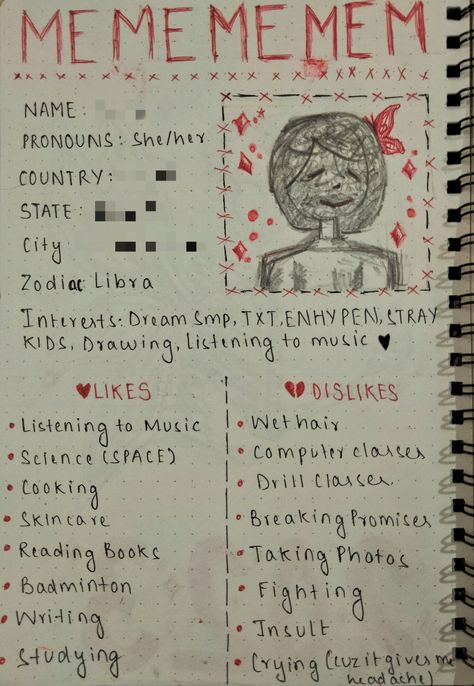 ME ME ME MEM EM
NAME :
PRONOUNS: She/her
COUNTRY:
STATE :
City
Zodiac: Libra
Interests: Dream Smp, TXT, ENHYPEN, STRAY
KIDS, Drawing, Listening to music ♥
♥LIKES
• Listening to Music
• Science (SPACE)
• Cooking
• Skincare
• Reading Books
• Badminton
• Writing
• Studying
💔DISLIKES
• Wet hair
• Computer classes
• Drill Classes
• Breaking Promises
• Taking Photos
• Fighting
• Insult
• Crying (cuz it gives me
headache)